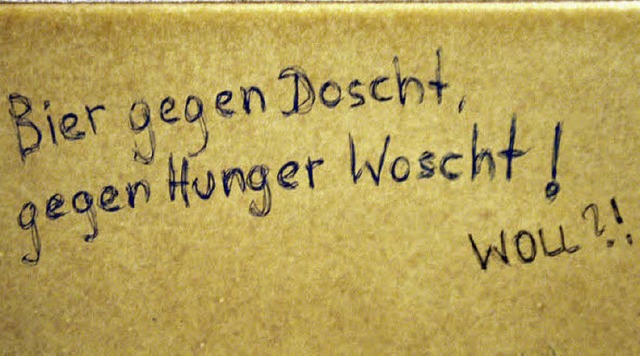 Bier gegen Doscht,
gegen Hunger Woscht!
WOLL?!